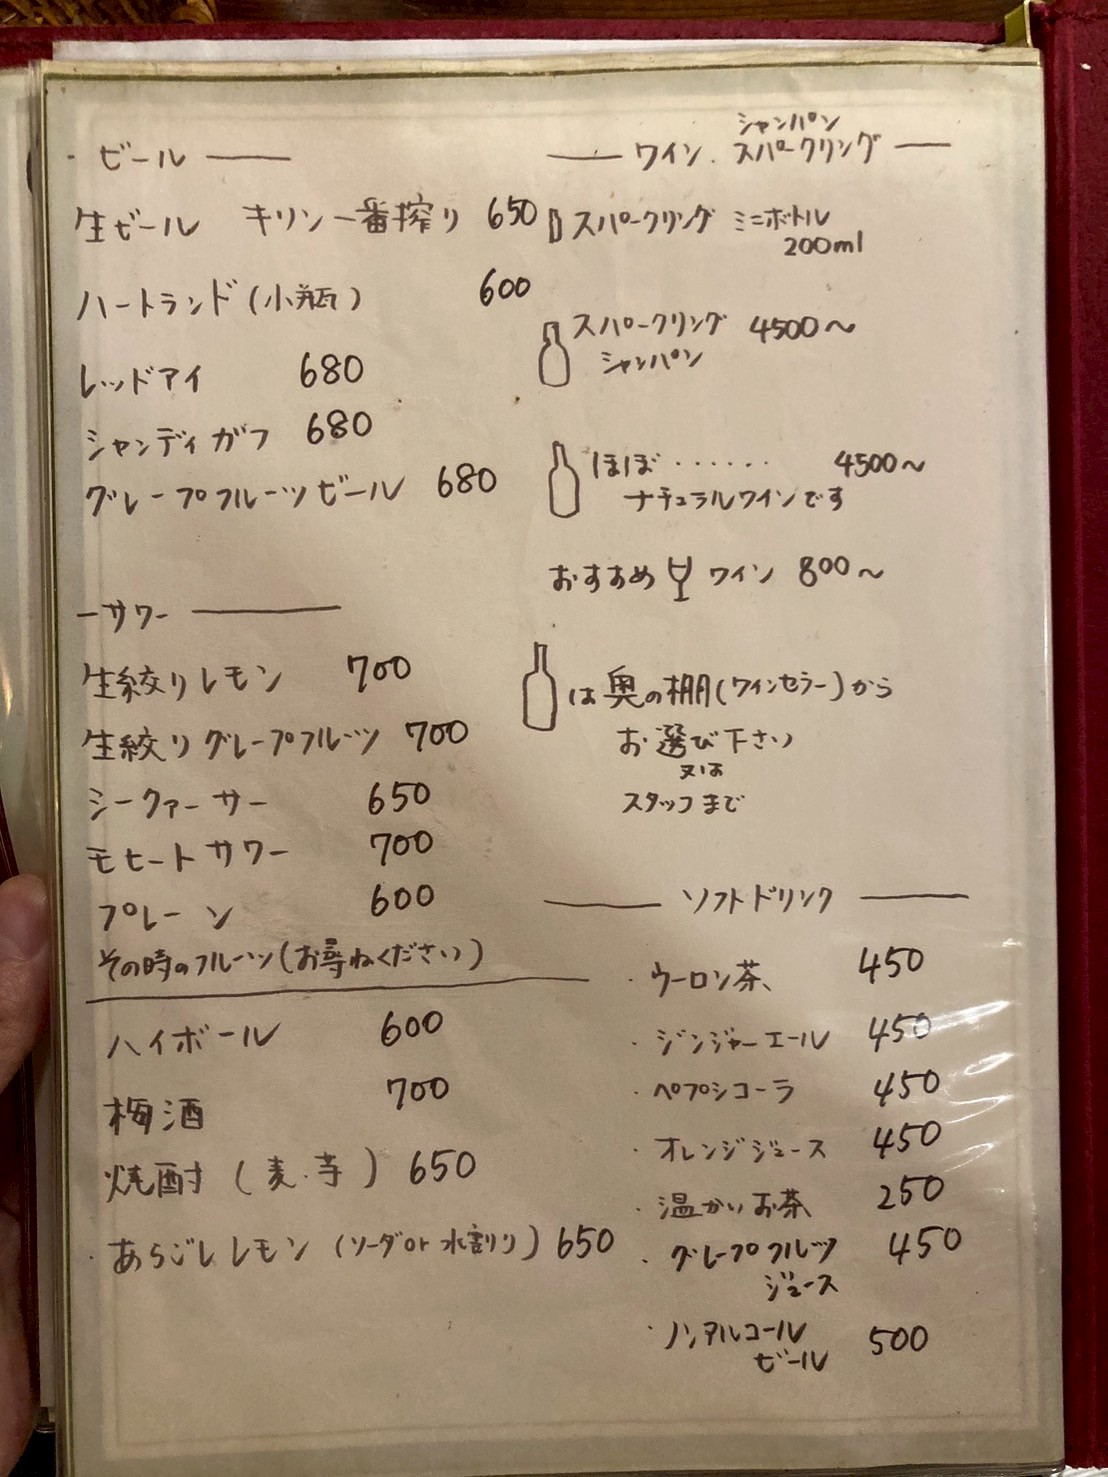 ビール
生ビール キリン一番搾り 650
ハートランド(小瓶) 600
レッドアイ 680
シャンディガフ 680
グレープフルーツビール 680
ーサワー
生絞りレモン 700
生絞りグレープフルーツ 700
シークァーサー 650
モヒートサワー 700
プレーン 600
その時のフルーツ(お尋ねください)
ハイボール 600
梅酒 700
焼酎(麦・芋) 650
・あらごしレモン(ソーダor水割り) 650
シャンパン
ワイン.スパークリング
スパークリング ミニボトル
200ml
スパークリング 4500〜
シャンパン
ほぼ・・・・・・ 4500〜
ナチュラルワインです
おすすめ ワイン 800〜
は奥の棚(ワインセラー)から
お選び下さい
又は
スタッフまで
ソフトドリンク
・ウーロン茶、 450
・ジンジャーエール 450
・ペプシコーラ 450
・オレンジジュース 450
・温かいお茶 250
・グレープフルーツ 450
ジュース
・ノンアルコール 500
ビール